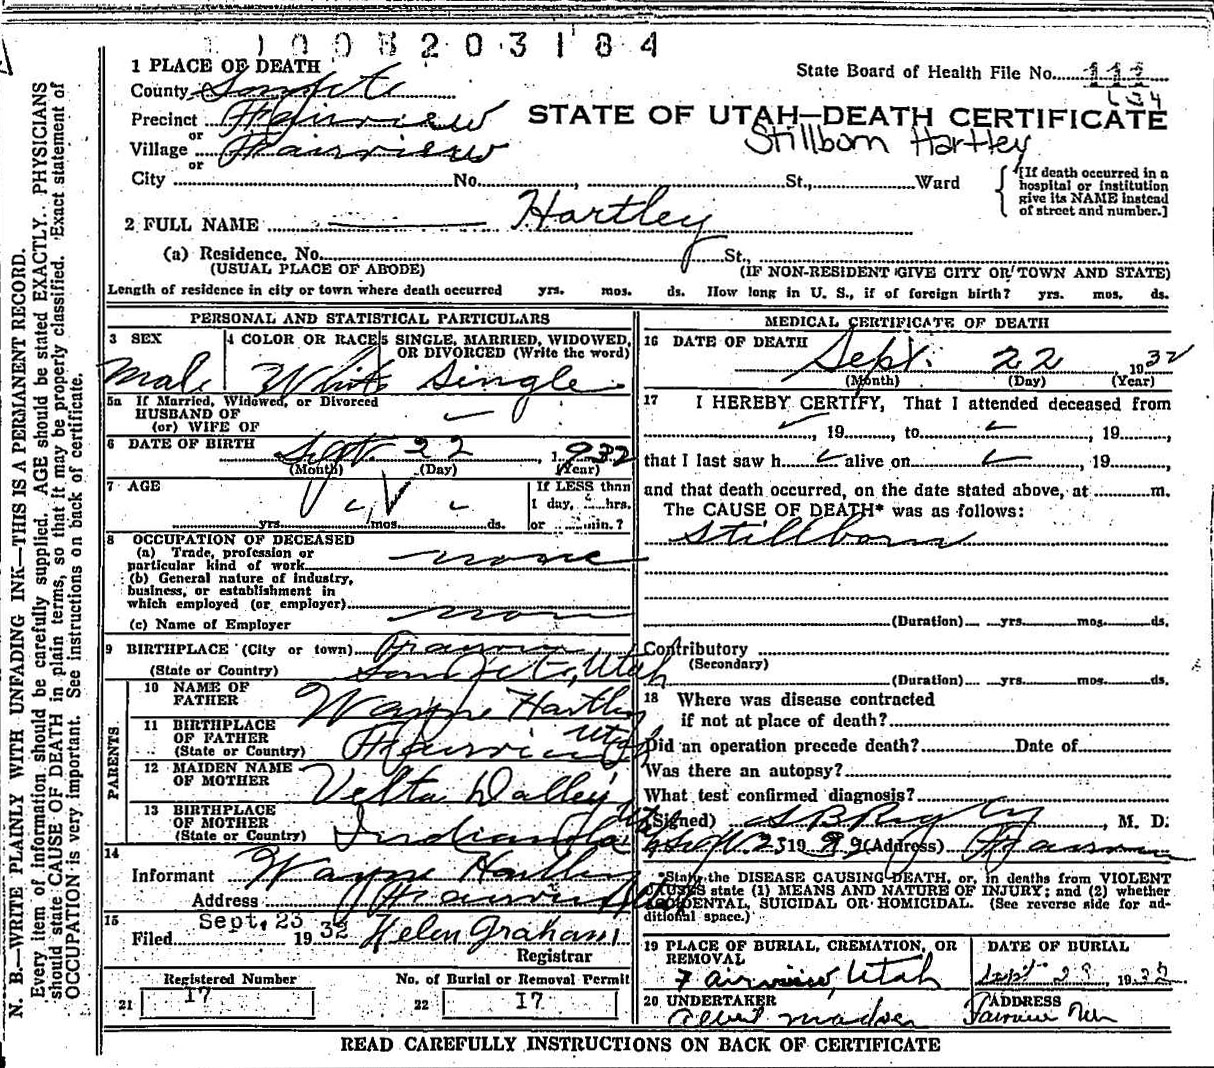 1 1 0 0 8 2 0 3 1 8 4
1 PLACE OF DEATH
State Board of Health File No. 111
County Sanpete
134
Precinct Fairview
STATE OF UTAH—DEATH CERTIFICATE
or
Stillborn Hartley
Village Fairview
or
City No. , St., Ward
[If death occurred in a hospital or institution give its NAME instead of street and number.]
2 FULL NAME Hartley
(a) Residence. No. St.,
(USUAL PLACE OF ABODE) (IF NON-RESIDENT GIVE CITY OR TOWN AND STATE)
Length of residence in city or town where death occurred yrs. mos. ds. How long in U. S., if of foreign birth? yrs. mos. ds.
PERSONAL AND STATISTICAL PARTICULARS
3 SEX 4 COLOR OR RACE 5 SINGLE, MARRIED, WIDOWED,
OR DIVORCED (Write the word)
Male White Single
5a If Married, Widowed, or Divorced
HUSBAND OF
(or) WIFE OF
6 DATE OF BIRTH Sept. 22, 1932
(Month) (Day) (Year)
7 AGE
If LESS than
1 day, hrs.
yrs. mos. ds. or min.?
8 OCCUPATION OF DECEASED
(a) Trade, profession or
particular kind of work none
(b) General nature of industry,
business, or establishment in
which employed (or employer) none
(c) Name of Employer
9 BIRTHPLACE (City or town) Fairview
(State or Country) Sanpete, Utah
PARENTS
10 NAME OF
FATHER Wayne Hartley
11 BIRTHPLACE
OF FATHER
(State or Country) Fairview Utah
12 MAIDEN NAME
OF MOTHER Velta Dalley
13 BIRTHPLACE
OF MOTHER
(State or Country) Indianola Utah
14
Informant Wayne Hartley
Address Fairview Utah
15
Filed Sept. 23 1932 Helen Graham
Registrar
Registered Number No. of Burial or Removal Permit
21 17 22 17
MEDICAL CERTIFICATE OF DEATH
16 DATE OF DEATH
Sept. 22 1932
(Month) (Day) (Year)
17 I HEREBY CERTIFY, That I attended deceased from
, 19 , to , 19 ,
that I last saw h alive on , 19 ,
and that death occurred, on the date stated above, at m.
The CAUSE OF DEATH* was as follows:
Stillborn
(Duration) yrs. mos. ds.
Contributory
(Secondary)
(Duration) yrs. mos. ds.
18 Where was disease contracted
if not at place of death?
Did an operation precede death? Date of
Was there an autopsy?
What test confirmed diagnosis?
(Signed) , M. D.
Sept. 23 19 (Address) Fairview
*State the DISEASE CAUSING DEATH, or, in deaths from VIOLENT
CAUSES state (1) MEANS AND NATURE OF INJURY; and (2) whether
ACCIDENTAL, SUICIDAL OR HOMICIDAL. (See reverse side for ad-
ditional space.)
19 PLACE OF BURIAL, CREMATION, OR
REMOVAL
Fairview, Utah
DATE OF BURIAL
Sept 23 1932
20 UNDERTAKER
Albert Madsen
ADDRESS
Fairview
READ CAREFULLY INSTRUCTIONS ON BACK OF CERTIFICATE
N. B.—WRITE PLAINLY WITH UNFADING INK—THIS IS A PERMANENT RECORD.
Every item of information should be carefully supplied. AGE should be stated EXACTLY. PHYSICIANS
should state CAUSE OF DEATH in plain terms, so that it may be properly classified. Exact statement of
OCCUPATION is very important. See instructions on back of certificate.